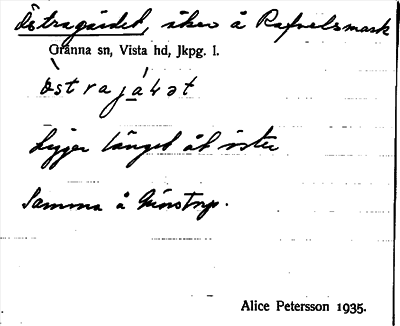 Östragärdet, åker å Rafvelsmark
Gränna sn, Vista hd, Jkpg. l.
östrajáɫət
Ligger längst åt öster
Samma å Gunstorp.
Alice Petersson 1935.